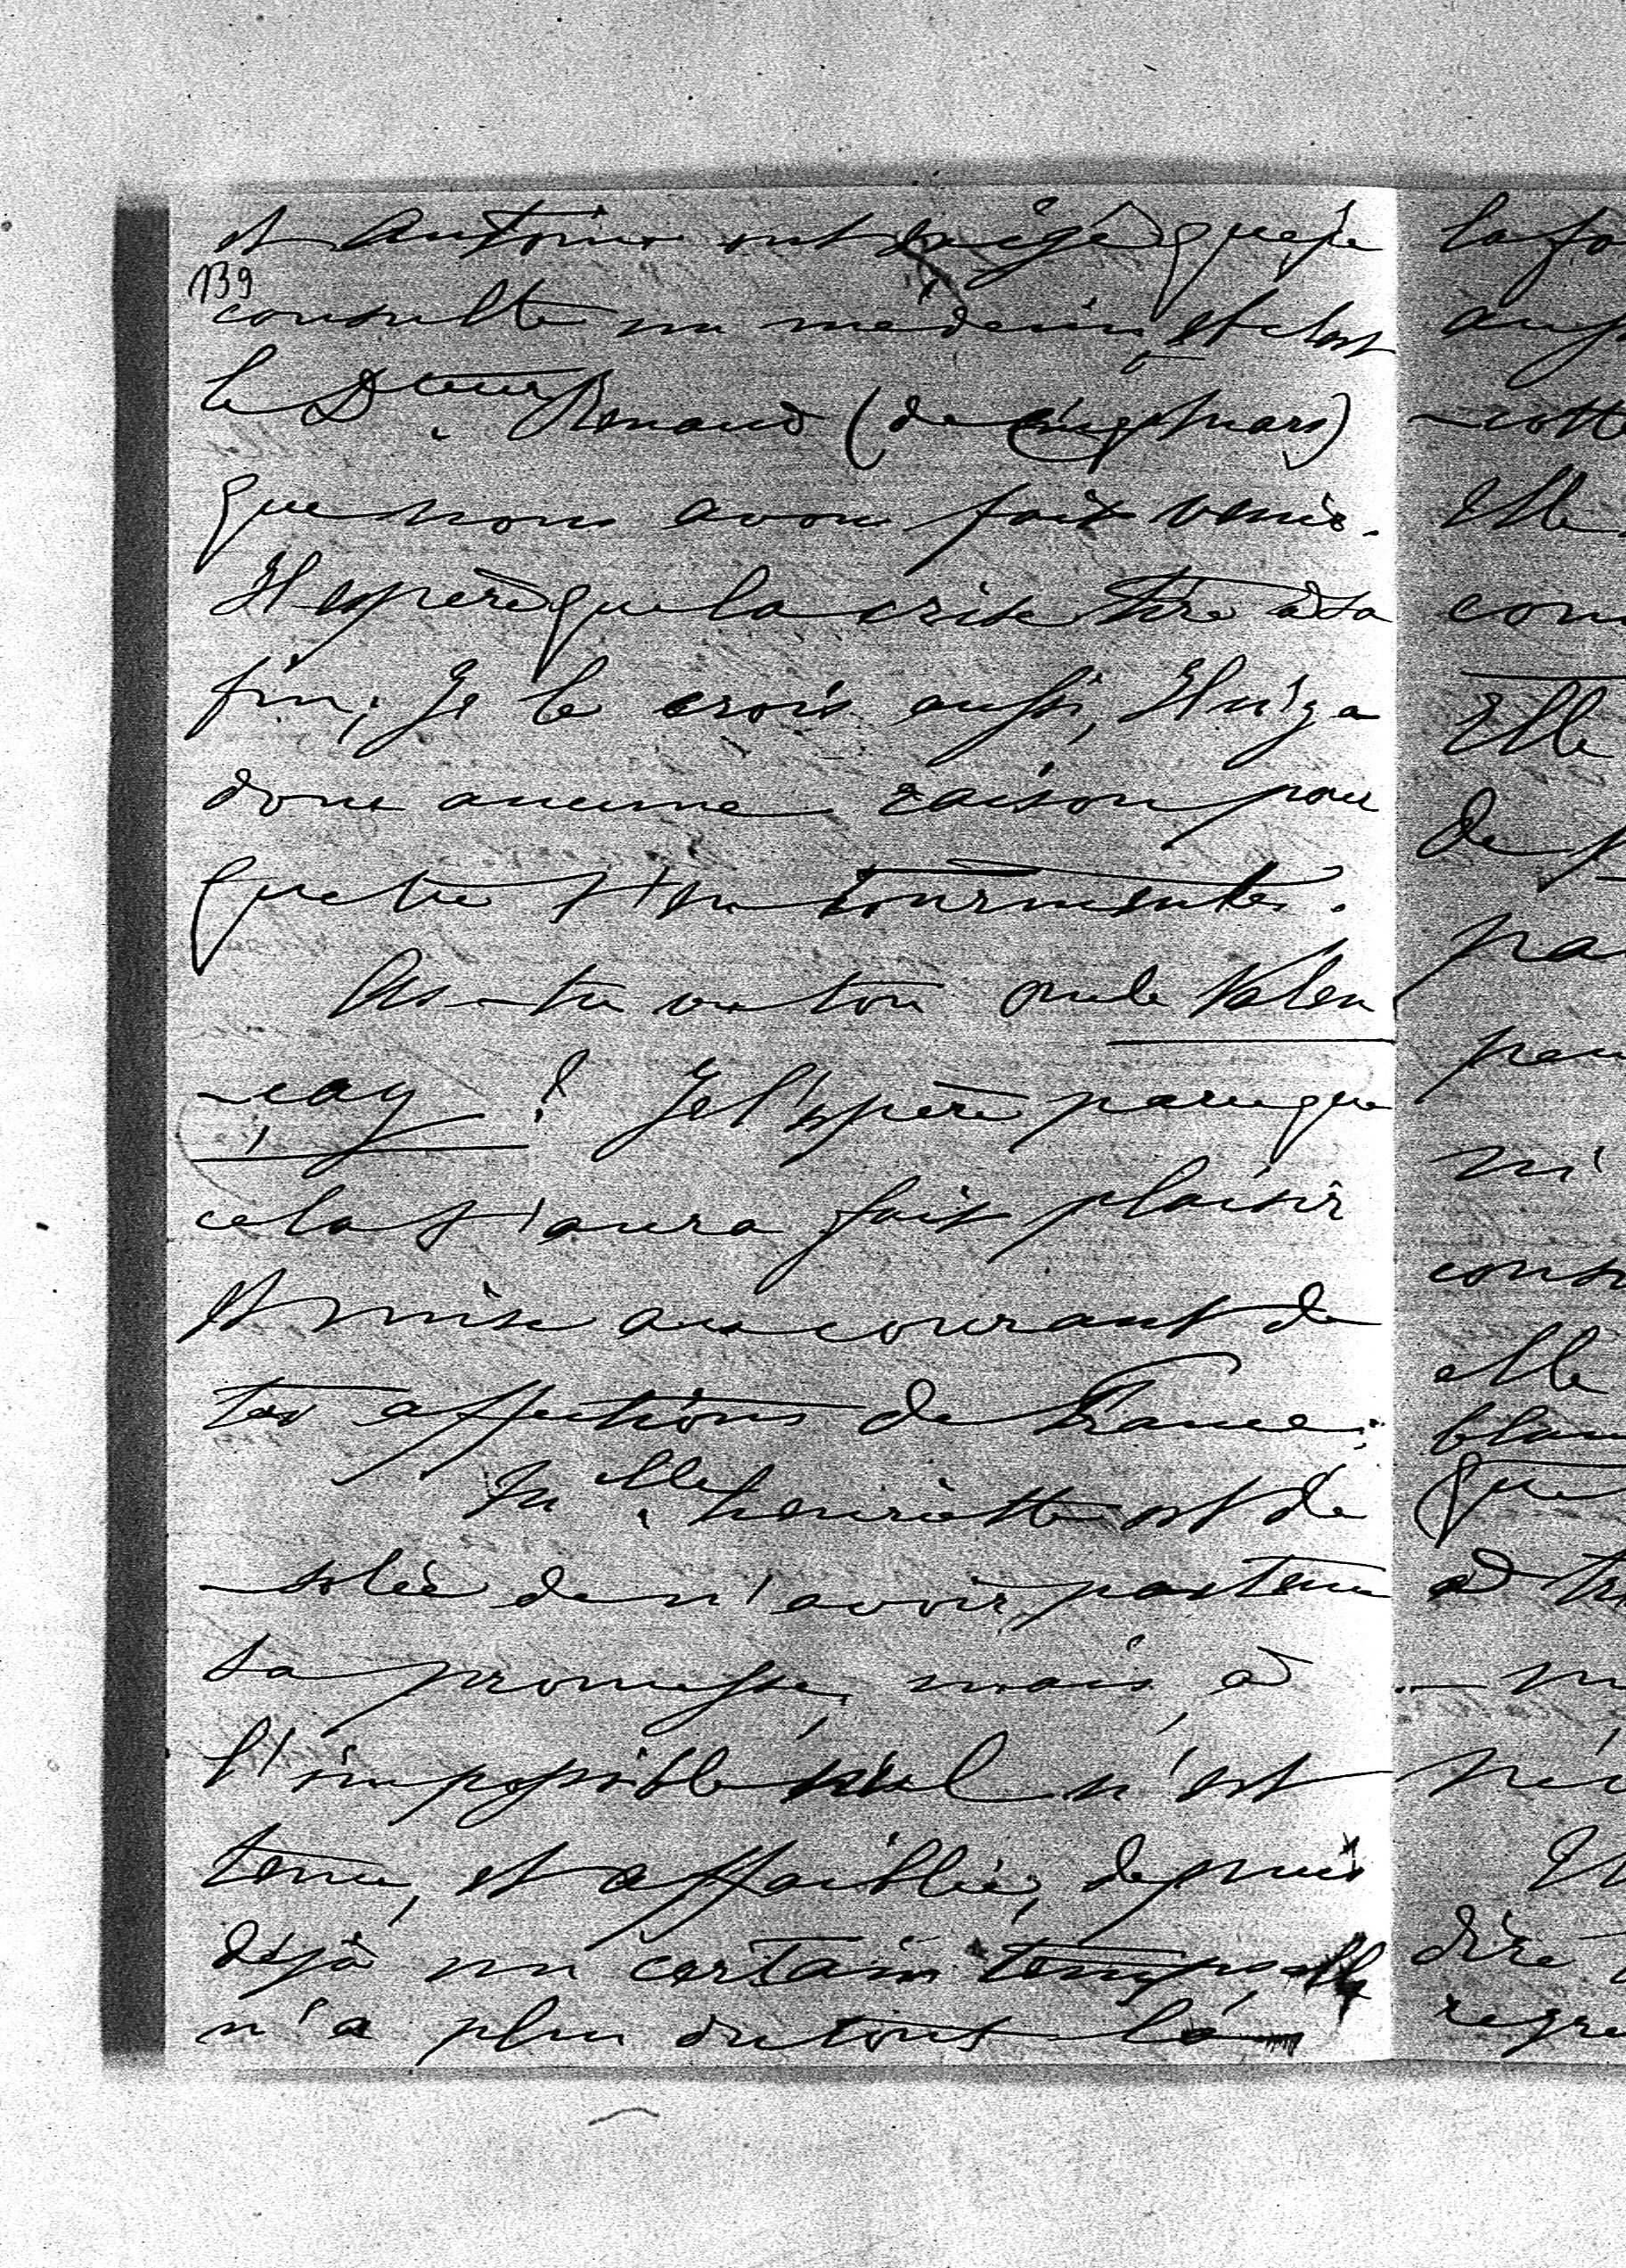 et Antoine ont exigé que je
139
consulte un médecin, et c'est
le Dteur Renaud (de Cinq-Mars)
que nous avons fait venir.
Il espère que la crise tire à sa
fin; Je le crois aussi, Il n'y a
donc aucune raison pour
que tu t'en tourmentes.
As-tu vu ton oncle Valen
-çay ? Je l'espère parce que
cela t'aura fait plaisir
et mise au courant de
tes affections de France.
Melle henriette est dé
-solée de n'avoir pas tenu
sa promesse, mais, à
l'impossible nul n'est
tenu, et affaiblie, depuis
déjà un certain temps elle
n'a plus du tout la
Elle
Elle
elle
que
dire